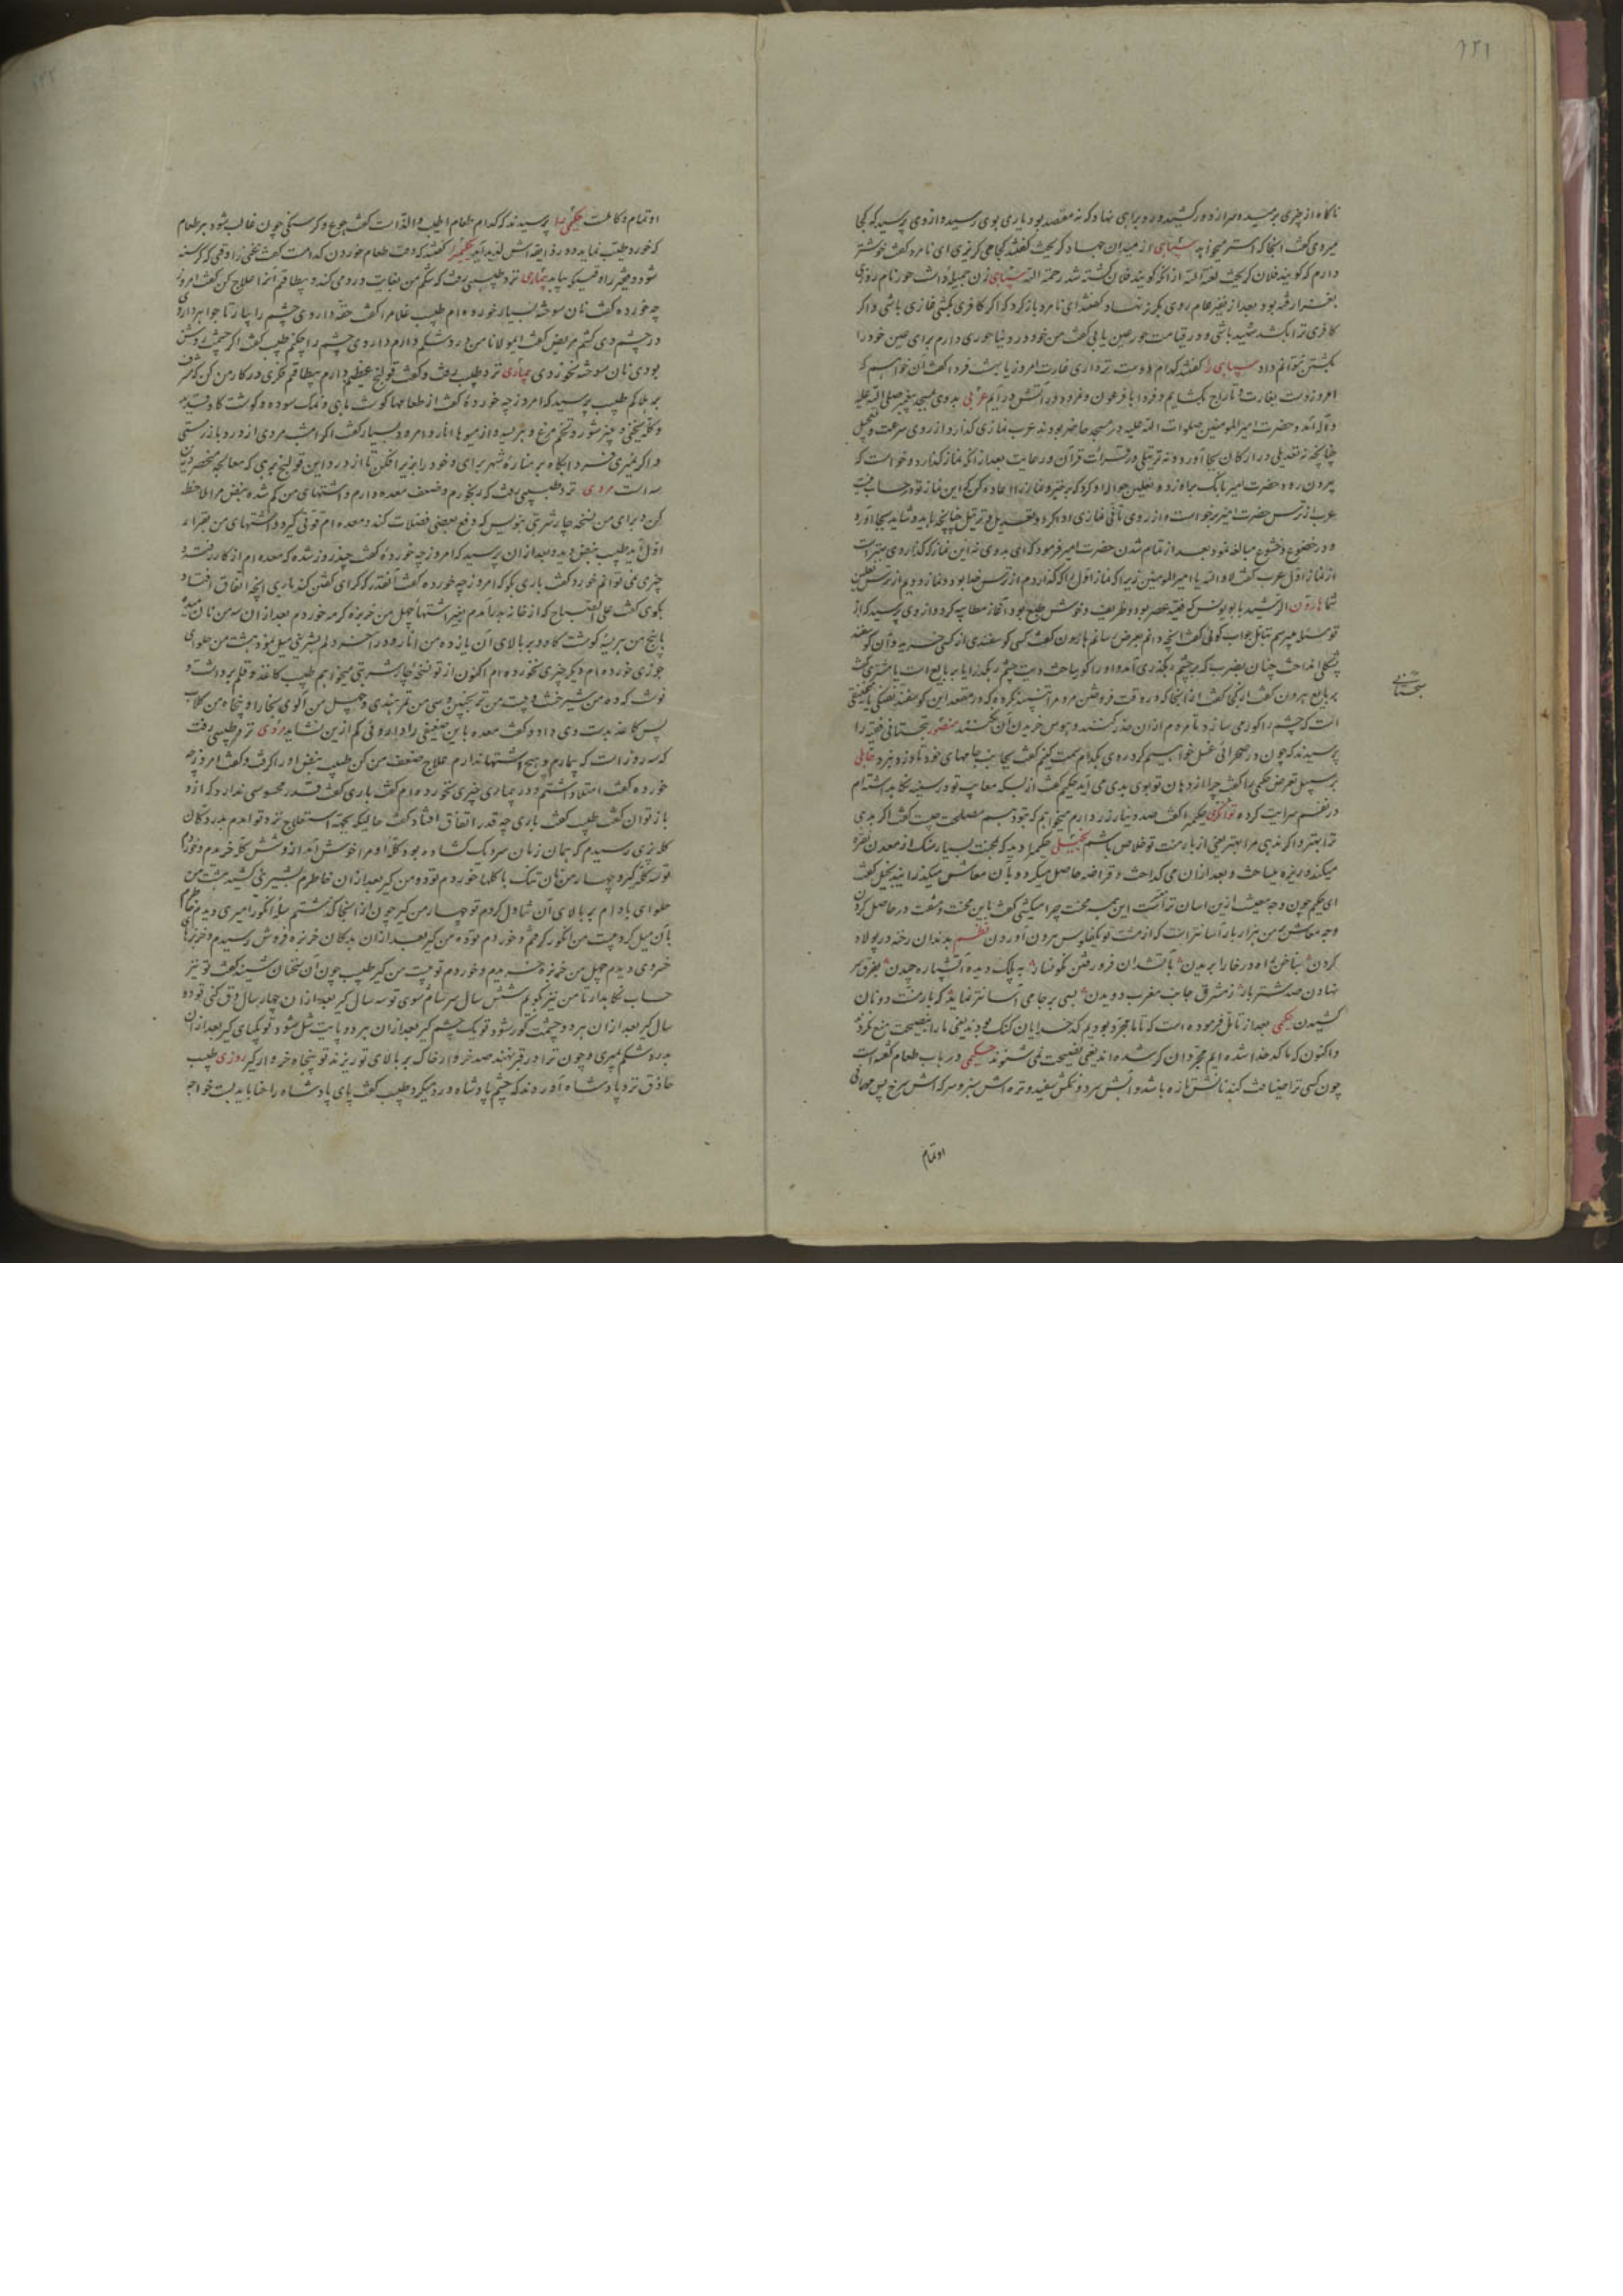 ۱۲۱
ناگاه از چیزی برمیده سر از ده درکشیده رو براهی نهاد که نه مقصد بود یاری بوی رسید و از وی پرسید که کجا
میروی گفت آنجا که استر میخواهد سپاهی از میدان جهاد گریخت گفتند کجا می گریزی ای نامرد گفت خوشتر
دارم که گویند فلان گریخت لعنه الله از آنکه گویند فلان کشته شد رحمه الله سپاهی زن جمیله داشت حور نام روزی
بغزا رفته بود بعد از نفیر عام روی بگریز نهاد گفتند ای نامرد بازگرد که اگر کافری بکشی غازی باشی و اگر
کافری ترا بکشد شهید باشی و در قیامت حور عین یابی گفت من خود در دنیا حوری دارم برای عین خود را
بکشتن نتوانم داد سپاهی را گفتند کدام دوست تر داری غارت امروز یا بهشت فردا گفت آن خواهم که
امروز دست بغارت و تاراج بگشایم و فردا با فرعون و نمرود در آتش در آیم عربی بدوی بمسجد پیغمبر صلی الله علیه
و آله آمد و حضرت امیر المومنین صلوات الله علیه در مسجد حاضر بودند عرب نمازی گذارد از روی سرعت و تعجیل
چنانچه نه تعدیلی در ارکان بجا آورد و نه ترتیلی در قرائت قرآن و رعایت بعد از آنکه نماز گذارد و خواست که
بیرون رود حضرت امیر بانگ براو زد و نعلین حواله او کرد که برخیز و نماز را اعاده کن که این نماز تو در حساب نیست
عرب از ترس حضرت امیر برخواست و از روی تأنی نمازی ادا کرد و تعدیل و ترتیل چنانچه باید و شاید بجا آورد
و در خضوع و خشوع مبالغه نمود بعد از تمام شدن حضرت امیر فرمود که ای بدوی نه این نماز که گذاردی بهتر است
از نماز اول عرب گفت لا والله یا امیر المومنین زیرا که نماز اول را که گذاردم از ترس خدا بود و نماز دویم از ترس نعلین
شما هارون الرشید با بویونس که فقیه عصر بود و ظریف و خوش طبع بود آغاز مطایبه کرد و از وی پرسید که از
تو مسئله میپرسم تأمل جواب گوئی گفت آنچه دانم بعرض رسانم هارون گفت کسی گوسفندی از کسی خریده و آن گوسفند
پشکلی انداخت چنان بضرب که بر چشم رهگذری آمد و او را کور ساخت دیت چشم رهگذر آیا بر بایع است یا مشتری گفت
بر بایع هرون گفت از کجا گفت از آنجا که در وقت فروختن مردم را تنبیه نکرده که در مقعد این گوسفند
است که چشم را کور می سازد تا مردم از آن حذر کنند و هوس خریدن آن نکنند منصور سجستانی فقیه را
سجستانی
پرسیدند که چون در صحرائی غسل خواهیم کرد روی بکدام سمت کنیم گفت بجانب جامهای خود تا دزد نبرد جاهلی
بر سبیل تعرض حکیمی را گفت چرا از دهان تو بوی بدی می آید حکیم گفت از بسکه معایب تو در سینه نگاه داشته ام
در نفسم سرایت کرده توانگری حکیمی را گفت صد دینار زر دارم میخواهم که بتو دهم مصلحت چیست گفت اگر بدهی
ترا بهتر و اگر ندهی مرا بهتر یعنی از بار منت تو خلاص باشم بخیلی حکیمی را دید که بمحنت بسیار سنگ از معدن نقره
میکند و ریزه میساخت و بعد از آن می گداخت و قراضه حاصل میکرد و بآن معاش میگذرانید بخیل گفت
ای حکیم چون وجه معیشت ازین آسان تر است این همه محنت چرا میکشی گفت باین محنت و مشقت در حاصل کردن
وجه معاش من هزار بار آسانتر است که از مشت تو یکفلوس بیرون آوردن نظم بدندان رخنه در پولاد
کردن بناخن راه در خارا بریدن باتشدان فرو رفتن نگونسار به پلک دیده آتشپاره چیدن بفرق سر
نهادن صد شتر بار ز مشرق جانب مغرب دویدن بسی بر جامی آسانتر نماید که بار منت دونان
کشیدن حکیمی بعد از تأمل فرموده است که تا ما مجرد بودیم کدخدایان گنگ بودند یعنی ما را بنصیحت منع نکردند
و اکنون که ما کدخدا شده ایم مجردان کر شده اند یعنی نصیحت نمی شنوند حکیمی در باب طعام گفته است
چون کسی ترا ضیافت کند نانش تازه باشد و آبش سرد و نمکش سفید و تره اش سبز و سرکه اش سرخ پس مهمانی
او تمام
او تمام و کاملست حکیمی را پرسیدند که کدام طعام اطیب و الذ است گفت جوع و گرسنگی چون غالب شود هر طعام
که خورد طیب نماید و در ذایقه اش لذیذ آید حکیمی را گفتند که وقت طعام خوردن کدامست گفت غنی را وقتی که گرسنه
شود و فقیر را وقتیکه بیابد بیماری نزد طبیبی رفت که شکم من بغایت درد می کند و بیطاقتم آنرا علاج کن گفت امروز
چه خورده گفت نان سوخته بسیار خورده ام طبیب غلام را گفت حقه داروی چشم را بیار تا جواهر دارو
در چشم وی کشم مریض گفت ای مولانا من درد شکم دارم داروی چشم را چکنم طبیب گفت اگر چشمت روشن
بودی نان سوخته نخوردی بیماری نزد طبیب رفت و گفت قولنج عظیم دارم بیطاقتم فکری در کار من کن که مشرف
بر هلاکم طبیب پرسید که امروز چه خورده گفت از طعامها گوشت ماهی و نمک سوده و گوشت گاو قدید
و کله یخنی و پنیر شور و تخم مرغ و هریسه و از میوها انار و امرود بسیار گفت اگر امشب مردی از درد باز رستی
و اگر نمیری فردا پگاه بر مناره شهر برای و خود را بزیر افکن تا از درد این قولنج برهی که معالجه منحصر درین
سه است مردی نزد طبیبی رفت که رنجورم و ضعف معده دارم و اشتهای من کم شده نبض مرا ملاحظه
کن و برای من نسخه چار شربتی بنویس که دفع بعضی فضلات کند و معده ام قوتی گیرد و اشتهای من بقرار
اول آید طبیب نبض دید و بعد از آن پرسید که امروز چه خورده گفت چند روز شده که معده ام از کار رفته و
چیزی نمی توانم خورد گفت باری بگو که امروز چه خورده گفت آنقدر که کرای گفتن کند باری آنچه اتفاق افتاد
بگوی گفت علی الصباح که از خانه بدر آمدم بغیر اشتها چهل من خربزه گرمه خوردم بعد از آن سه من نان میده
با پنج من بریه گوشت گاو و بر بالای آن یازده من انار و در آخر دلم بشیرینی میل نمود هشت من حلوای
جوزی خورده ام و دیگر چیزی نخورده ام اکنون از تو نسخه چار شربتی میخواهم طبیب کاغذ و قلم برداشت و
نوشت که ده من شیر خشت و بیست من ترنجبین و سی من تمر هندی و چهل من آلوی بخارا و پنجاه من گلاب
پس کاغذ بدست وی داد و گفت معده باین ضعیفی را داروئی کم ازین نشاید مردی نزد طبیبی رفت
که سه روز است که بیمارم و هیچ اشتها ندارم علاج ضعف من کن طبیب نبض او را گرفت و گفت امروز چه
خورده گفت امتلا داشتم و در بیماری چیزی نخورده ام گفت باری گفت قدر محسوسی ندارد که از و
باز توان گفت طبیب گفت باری چه قدر اتفاق افتاد گفت حالیکه بجهة استعلاج نزد تو آمدم بدر دکان
کله پزی رسیدم که همان زمان سر دیگ گشاده بود کله او مرا خوش آمد از و شش کله خریدم و خوردم
تو سه کله گیر و چهار من نان تنک با کلها خوردم تو دو من گیر بعد از آن خاطرم بشیرینی کشید هشت من
حلوای بادام بر بالای آن تناول کردم تو چهار من گیر چون از آنجا گذشتم سله انگور امیری دیدم خاطرم
بآن میل کرد بیست من انگور گرفتم و خوردم تو ده من گیر بعد از آن بدکان خربزه فروش رسیدم و خربزهای
خسروی دیدم چهل من خربزه خریدم و خوردم تو بیست من گیر طبیب چون آن سخنان شنید گفت تو نیز
حساب نگاهدار تا من نیز بگویم شش سال سرسام شوی تو سه سال گیر بعد از آن چهار سال دق کنی تو دو
سال گیر بعد از آن هر دو چشمت کور شود تو یک چشم گیر بعد از آن هر دو پایت شل شود تو یکپای گیر بعد از آن
بدرد شکم بمیری و چون ترا در قبر نهند صد خروار خاک بر بالای تو ریزند تو پنجاه خروار گیر روزی طبیب
حاذق نزد پادشاه آوردند که چشم پادشاه درد میکرد طبیب گفت پای پادشاه را حنا باید بست خواجه